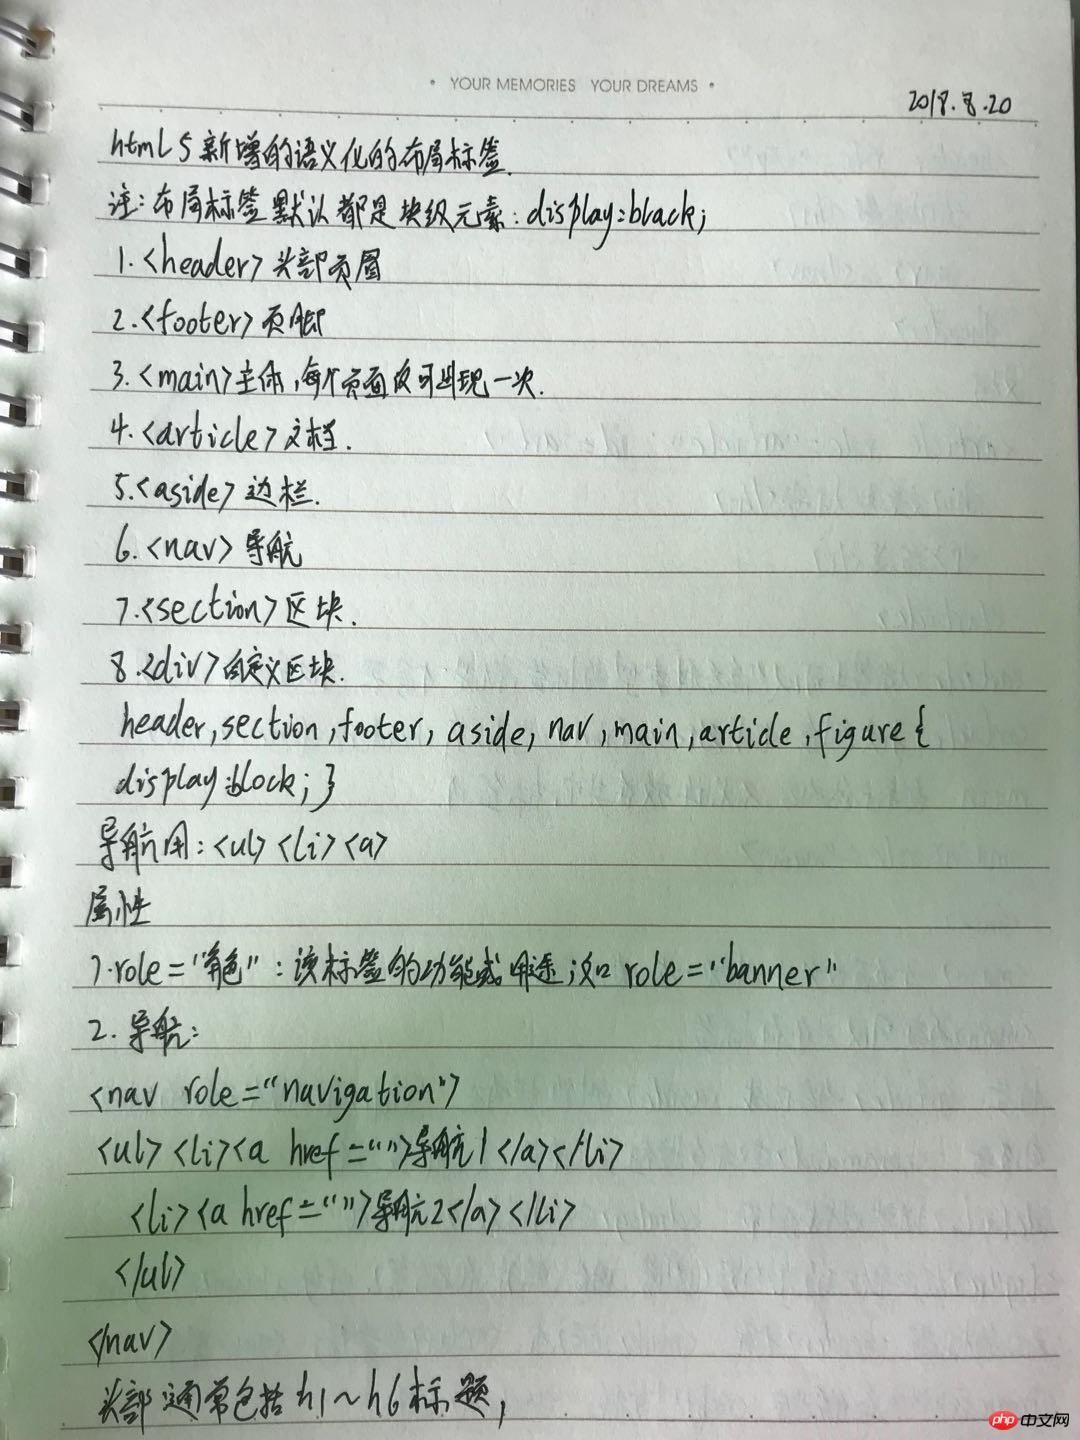 • YOUR MEMORIES YOUR DREAMS •
2018.8.20
html5新增的语义化的布局标签.
注:布局标签默认都是块级元素:display:black;
1.<header>头部页眉
2.<footer>页脚
3.<main>主体,每个页面仅可出现一次.
4.<article>文档.
5.<aside>边栏.
6.<nav>导航
7.<section>区块.
8.<div>自定义区块.
header,section,footer,aside,nav,main,article,figure{
display:block;}
导航用:<ul><li><a>
属性
1.role="角色":该标签的功能或用途;如role="banner"
2.导航:
<nav role="navigation">
<ul><li><a href="">导航1</a></li>
<li><a href="">导航2</a></li>
</ul>
</nav>
头部通常包括h1~h6标题,
php中文网